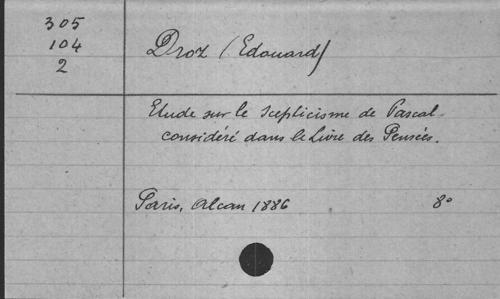 305
104
2
Droz (Edouard)
Etude sur le scepticisme de Pascal
considéré dans le Livre des Pensées.
Paris, Alcan 1886 8°